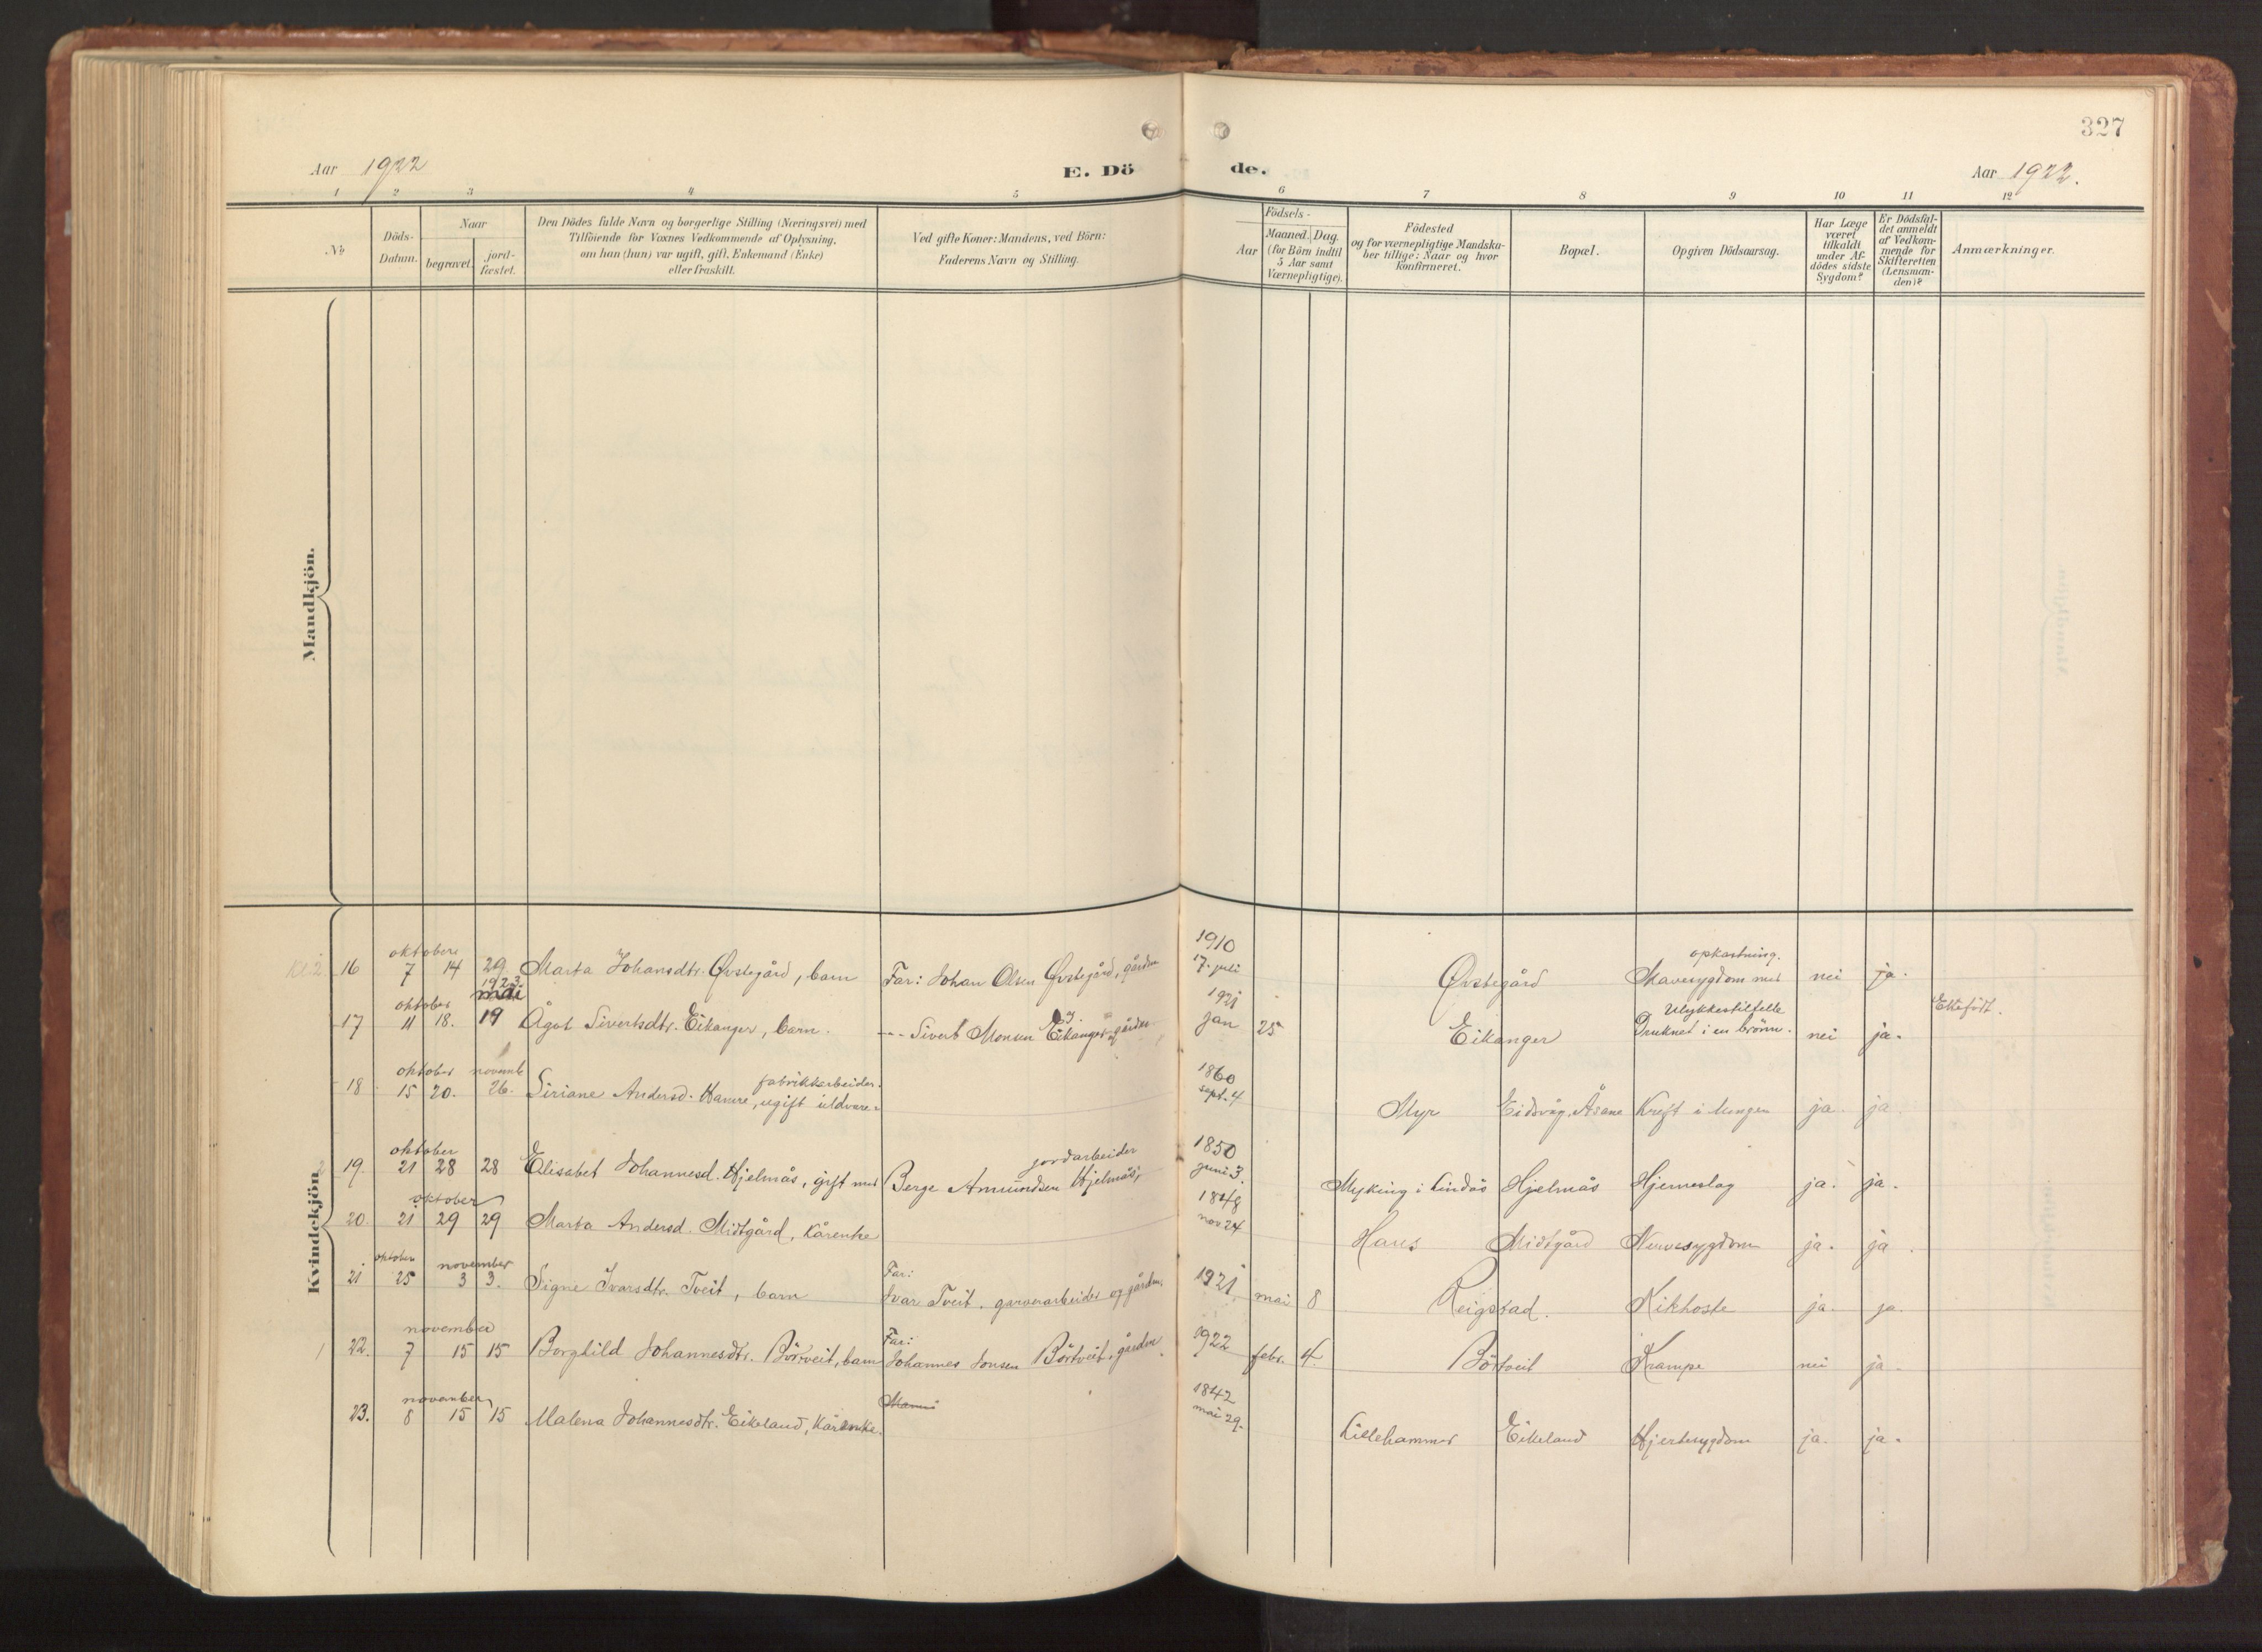 327
Aar 1922
E. Dö
de.
Aar 1922.
1 2 3 4 5 6 7 8 9 10 11 12
No
Döds-
Datum.
Naar
begravet.
jord-
fæstet.
Den Dödes fulde Navn og borgerlige Stilling (Næringsvei) med
Tilföiende for Voxnes Vedkommende af Oplysning,
om han (hun) var ugift, gift, Enkemand (Enke)
eller fraskilt.
Ved gifte Koner: Mandens, ved Börn:
Faderens Navn og Stilling.
Födsels-
Aar
Maaned. Dag.
(for Börn indtil
5 Aar samt
Værnepligtige).
Födested
og for værnepligtige Mandska-
ber tillige: Naar og hvor
konfirmeret.
Bopæl.
Opgiven Dödsaarsag.
Har Læge
været
tilkaldt
under Af-
dödes sidste
Sygdom?
Er Dödsfal-
det anmeldt
af Vedkom-
mende for
Skifteretten
(Lensman-
den)?
Anmærkninger.
Mandkjön.
Kvindekjön.
oktober 1910 opkastning.
16 7 14 29 Marta Johansdtr. Øvstegård, barn Far: Johan Olsen Øvstegård, gårdm 17. juli Øvstegård Mavesygdom med nei ja.
oktober 1923 mai 1921 Ulykkestilfelle Ektefödt.
17 11 18. 19 Ågot Sivertsdtr. Eikanger, barn. --- Sivert Monsen Eikanger, gårdm. jan 25 Eikanger Druknet i en brönn. nei ja.
oktober novemb fabrikkarbeider. 1860
18 15 20. 26. Siriane Andersd. Hamre, ugift uldvare- sept. 4 Myr Eidsvåg, Åsane Kreft i lungen ja. ja
oktober jordarbeider 1850
19. 21 28 28 Elisabet Johannesd. Hjelmås, gift med Berge Amundsen Hjelmås, juni 3. Myking i Lindås Hjelmås Hjerneslag ja. ja.
oktober 1848
20. 21 29 29 Marta Andersd. Midtgård, kårenke nov 24 Haus Midtgård Nervesygdom ja. ja.
oktober november Far: 1921
21 25 3 3. Signe Ivarsdtr. Tveit, barn Ivar Tveit, garverarbeider og gårdm. mai 8 Reigstad. Kikhoste ja. ja.
november Far: 1922
22. 7 15 15 Borghild Johannesdtr. Börtveit, barn Johannes Jonsen Börtveit, gårdm. febr. 4. Börtveit Krampe nei ja.
november 1842
23. 8 15 15 Malena Johannesdtr. Eikeland, kårenke. mai 29. Lillehammer Eikeland Hjertesygdom ja. ja.